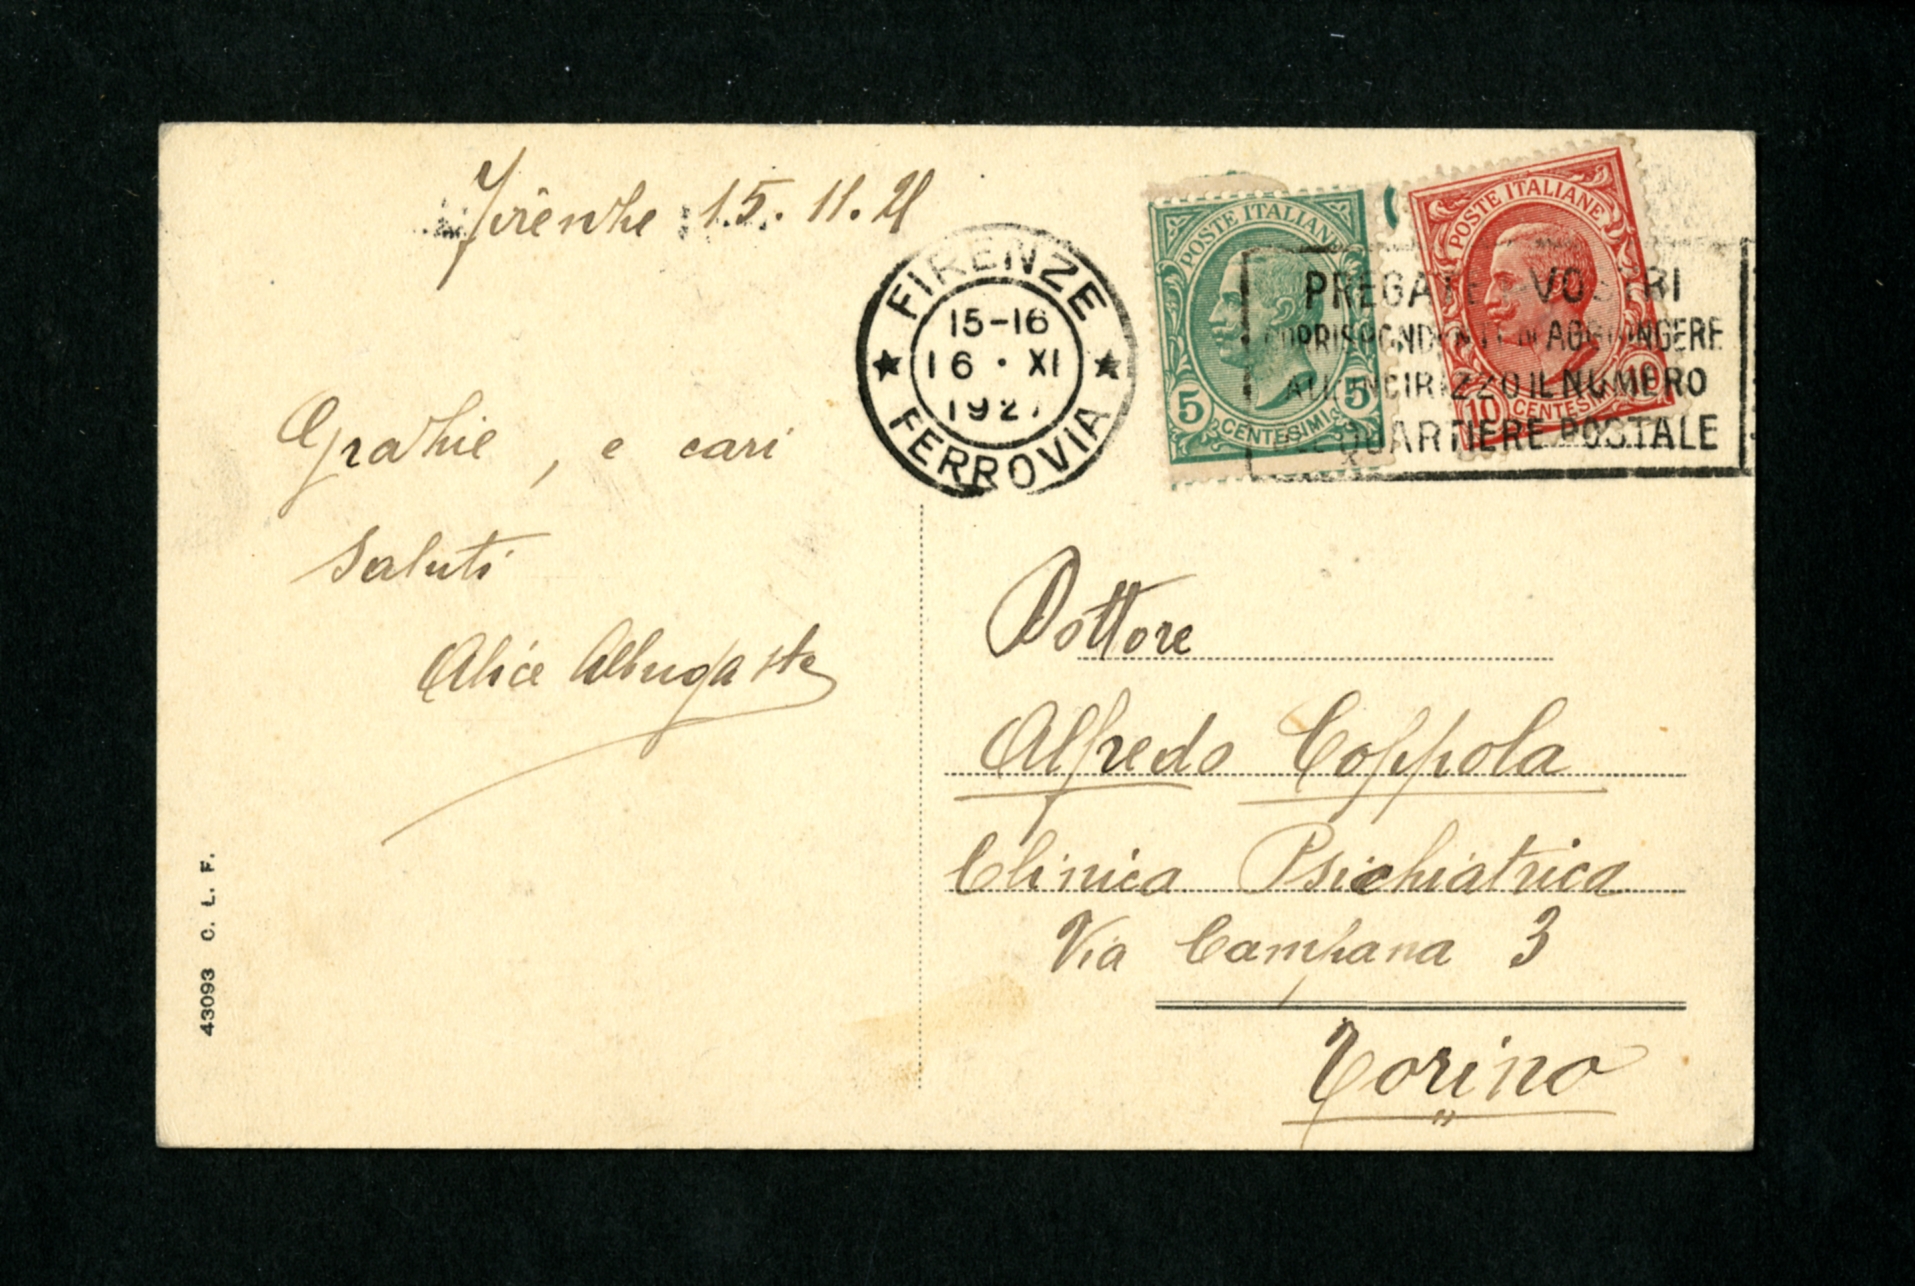 Firenze 15. 11. 21
FIRENZE
15-16
16 · XI
192
FERROVIA
POSTE ITALIANE
5 5
CENTESIMI
POSTE ITALIANE
10 10
CENTESIMI
PREGATE VOSTRI
CORRISPONDENTI DI AGGIUNGERE
ALL'INDIRIZZO IL NUMERO
QUARTIERE POSTALE
Grazie, e cari
saluti
Alice
Dottore
Alfredo Coppola
Clinica Psichiatrica
Via Campana 3
Torino
43093 C. L. F.